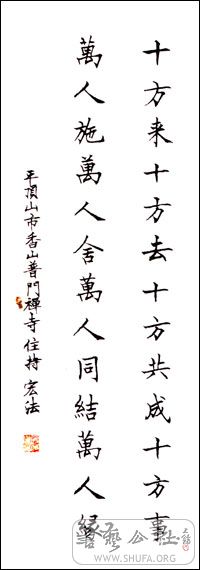 十方来十方去十方共成十方事
萬人施萬人舍萬人同結萬人緣
平頂山市香山普門禪寺住持 宏法
書藝公社
WWW.SHUFA.ORG